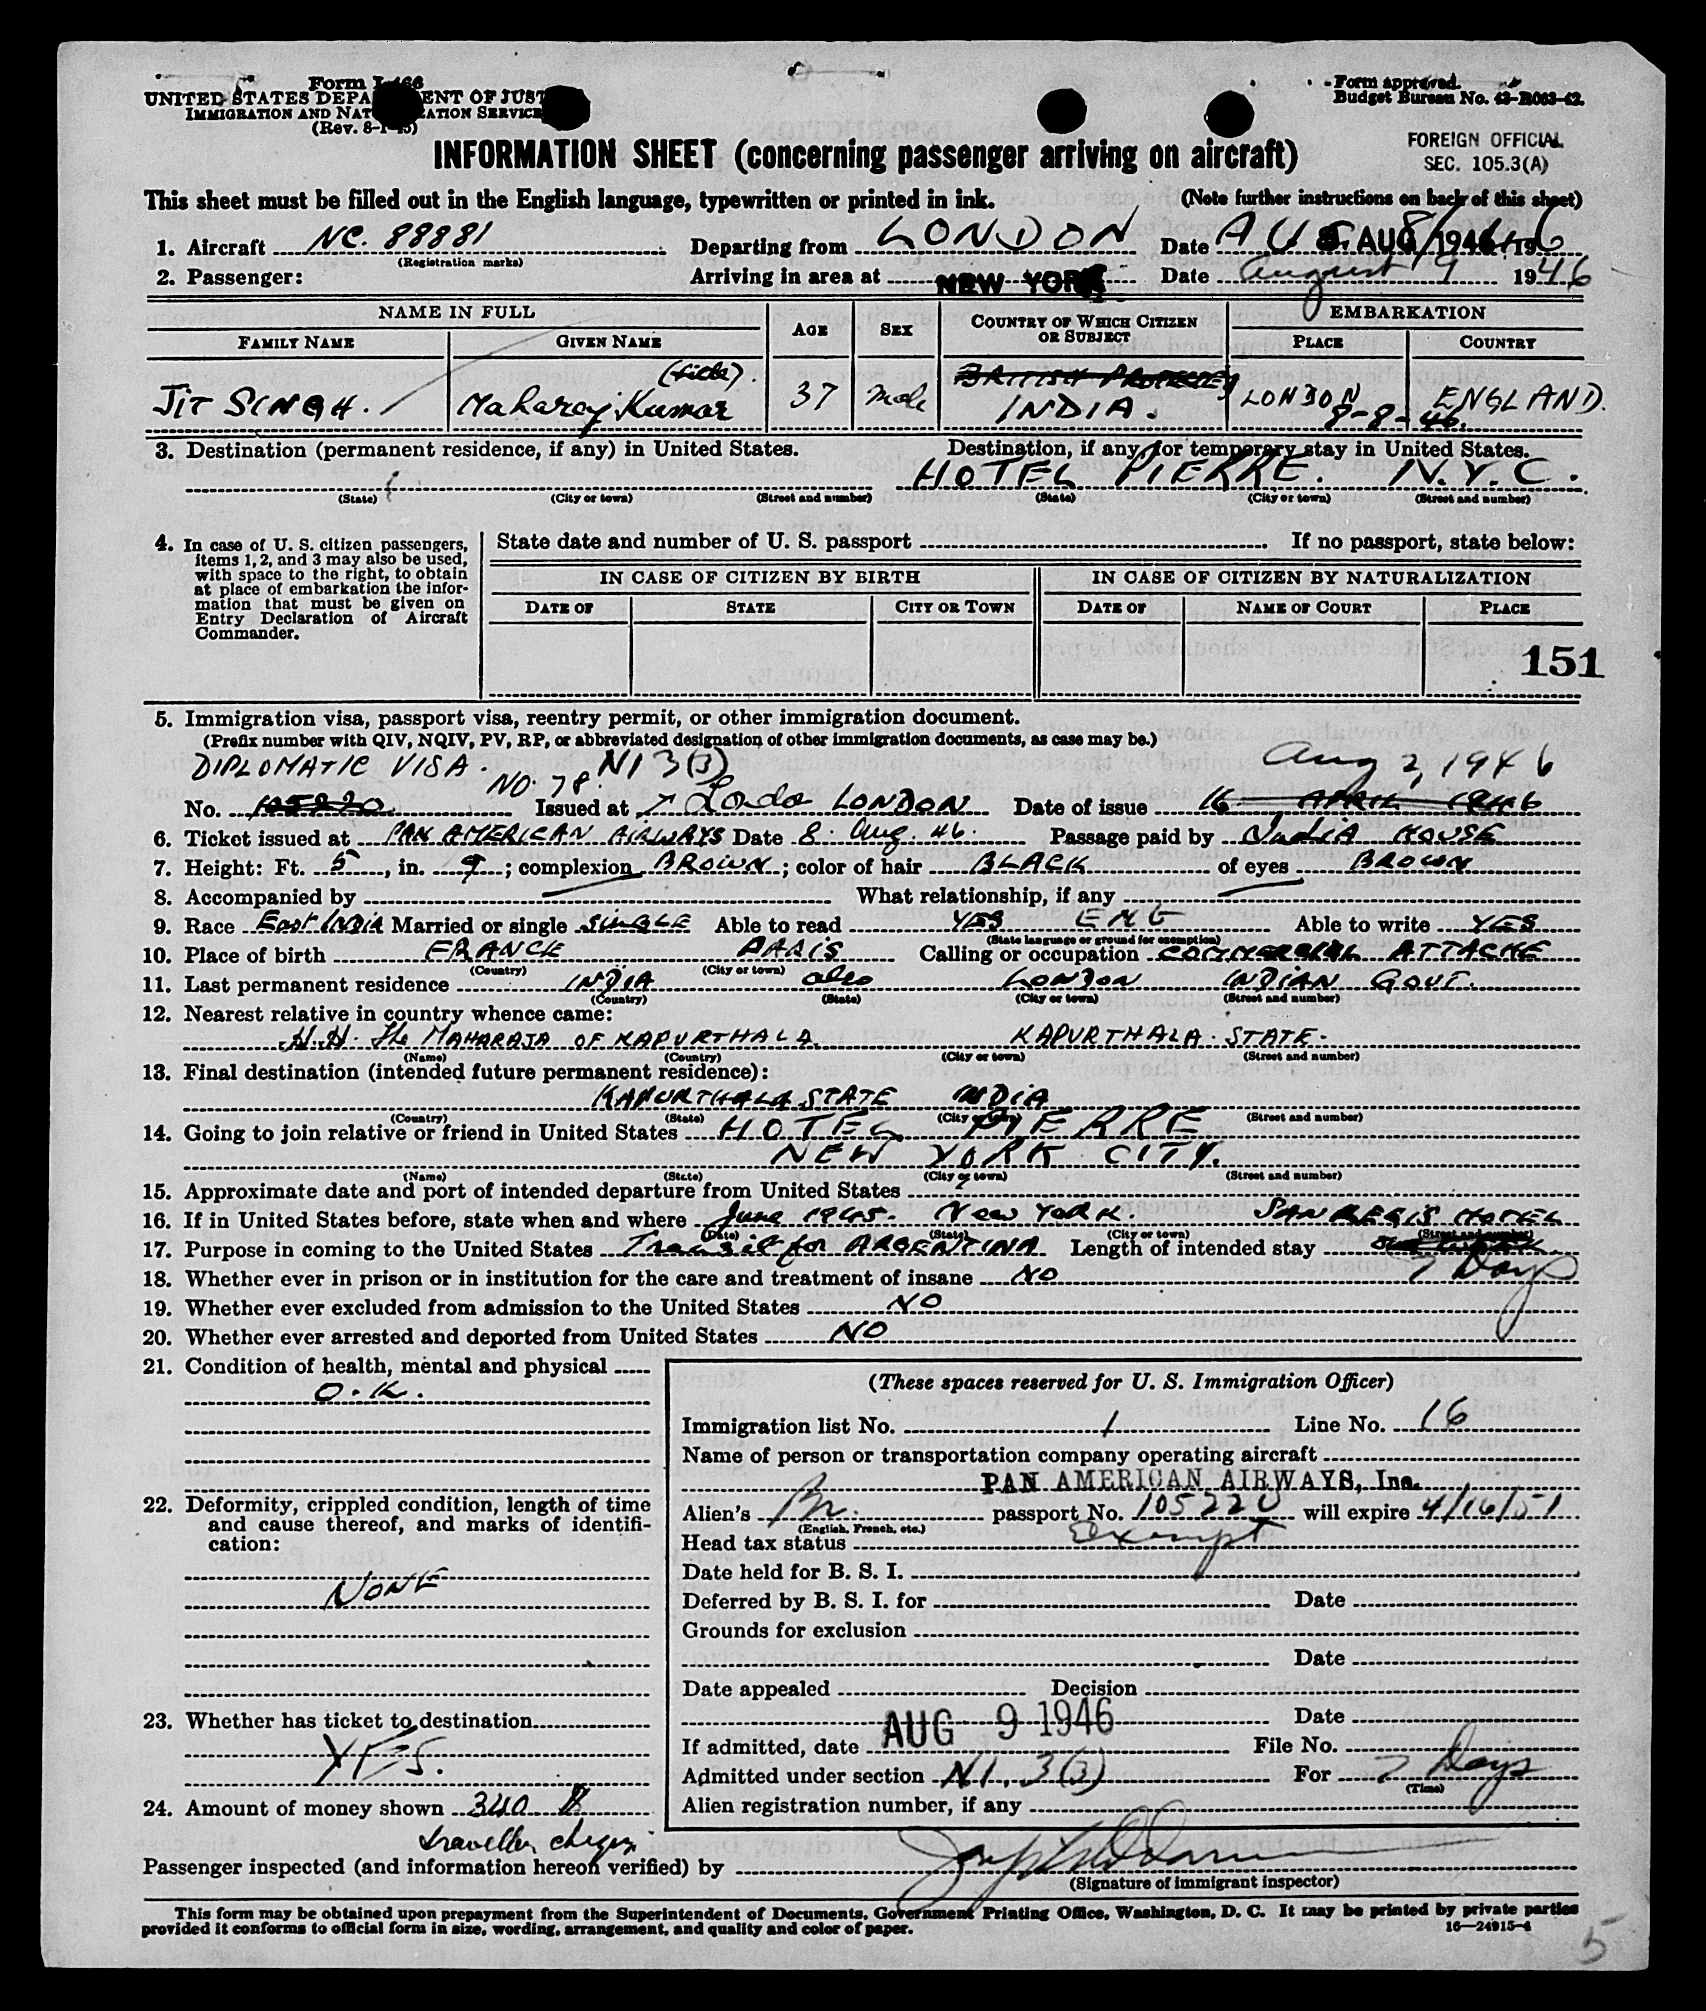 Form I-466
UNITED STATES DEPARTMENT OF JUSTICE
IMMIGRATION AND NATURALIZATION SERVICE
(Rev. 8-1-45)
Form approved.
Budget Bureau No. 43-R063-42.
FOREIGN OFFICIAL
SEC. 105.3(A)
INFORMATION SHEET (concerning passenger arriving on aircraft)
This sheet must be filled out in the English language, typewritten or printed in ink. (Note further instructions on back of this sheet)
1. Aircraft NC. 88881 Departing from LONDON Date AUG 8 AUG 1946 1946
(Registration marks)
2. Passenger: Arriving in area at NEW YORK Date August 9 1946
NAME IN FULL AGE SEX COUNTRY OF WHICH CITIZEN OR SUBJECT EMBARKATION
FAMILY NAME GIVEN NAME PLACE COUNTRY
JIT SINGH. Maharaj Kumar (title). 37 male BRITISH PROTECTED INDIA. LONDON 8-8-46. ENGLAND.
3. Destination (permanent residence, if any) in United States. Destination, if any, for temporary stay in United States.
HOTEL PIERRE. N.Y.C.
(State) (City or town) (Street and number) (State) (City or town) (Street and number)
4. In case of U. S. citizen passengers, items 1, 2, and 3 may also be used, with space to the right, to obtain at place of embarkation the information that must be given on Entry Declaration of Aircraft Commander.
State date and number of U. S. passport If no passport, state below:
IN CASE OF CITIZEN BY BIRTH IN CASE OF CITIZEN BY NATURALIZATION
DATE OF STATE CITY OR TOWN DATE OF NAME OF COURT PLACE
151
5. Immigration visa, passport visa, reentry permit, or other immigration document.
(Prefix number with QIV, NQIV, PV, RP, or abbreviated designation of other immigration documents, as case may be.)
DIPLOMATIC VISA. NO. 78. NI 3(3) Aug 2, 1946
No. 105220 Issued at London LONDON Date of issue 16 APRIL 1946
6. Ticket issued at PAN AMERICAN AIRWAYS Date 8. Aug. 46. Passage paid by India HOUSE
7. Height: Ft. 5, in. 9; complexion BROWN; color of hair BLACK of eyes BROWN
8. Accompanied by What relationship, if any
9. Race East INDIA Married or single SINGLE Able to read YES ENG Able to write YES
(State language or ground for exemption)
10. Place of birth FRANCE PARIS Calling or occupation COMMERCIAL ATTACHE
(Country) (City or town)
11. Last permanent residence INDIA also LONDON INDIAN GOVT.
(Country) (State) (City or town) (Street and number)
12. Nearest relative in country whence came:
H.H. The MAHARAJA OF KAPURTHALA. KAPURTHALA. STATE.
(Name) (Country) (City or town) (Street and number)
13. Final destination (intended future permanent residence):
KAPURTHALA STATE INDIA
(Country) (State) (City or town) (Street and number)
14. Going to join relative or friend in United States HOTEL PIERRE
NEW YORK CITY.
(Name) (State) (City or town) (Street and number)
15. Approximate date and port of intended departure from United States
16. If in United States before, state when and where June 1945. New YORK. SAN REGIS HOTEL
(Date) (State) (City or town) (Street and number)
17. Purpose in coming to the United States Transit for ARGENTINA Length of intended stay 7 Days
18. Whether ever in prison or in institution for the care and treatment of insane NO
19. Whether ever excluded from admission to the United States NO
20. Whether ever arrested and deported from United States NO
21. Condition of health, mental and physical
O.K.
22. Deformity, crippled condition, length of time and cause thereof, and marks of identification:
NONE
23. Whether has ticket to destination
YES.
24. Amount of money shown 340 $
traveller cheques
(These spaces reserved for U. S. Immigration Officer)
Immigration list No. 1 Line No. 16
Name of person or transportation company operating aircraft
PAN AMERICAN AIRWAYS, Inc.
Alien's Br. passport No. 105220 will expire 4/16/51
(English, French, etc.)
Head tax status Exempt
Date held for B. S. I.
Deferred by B. S. I. for Date
Grounds for exclusion
Date
Date appealed Decision
Date
If admitted, date AUG 9 1946 File No.
Admitted under section NI. 3(3) For 7 Days
(Time)
Alien registration number, if any
Passenger inspected (and information hereon verified) by
(Signature of immigrant inspector)
This form may be obtained upon prepayment from the Superintendent of Documents, Government Printing Office, Washington, D. C. It may be printed by private parties
provided it conforms to official form in size, wording, arrangement, and quality and color of paper. 16—24915-4
5